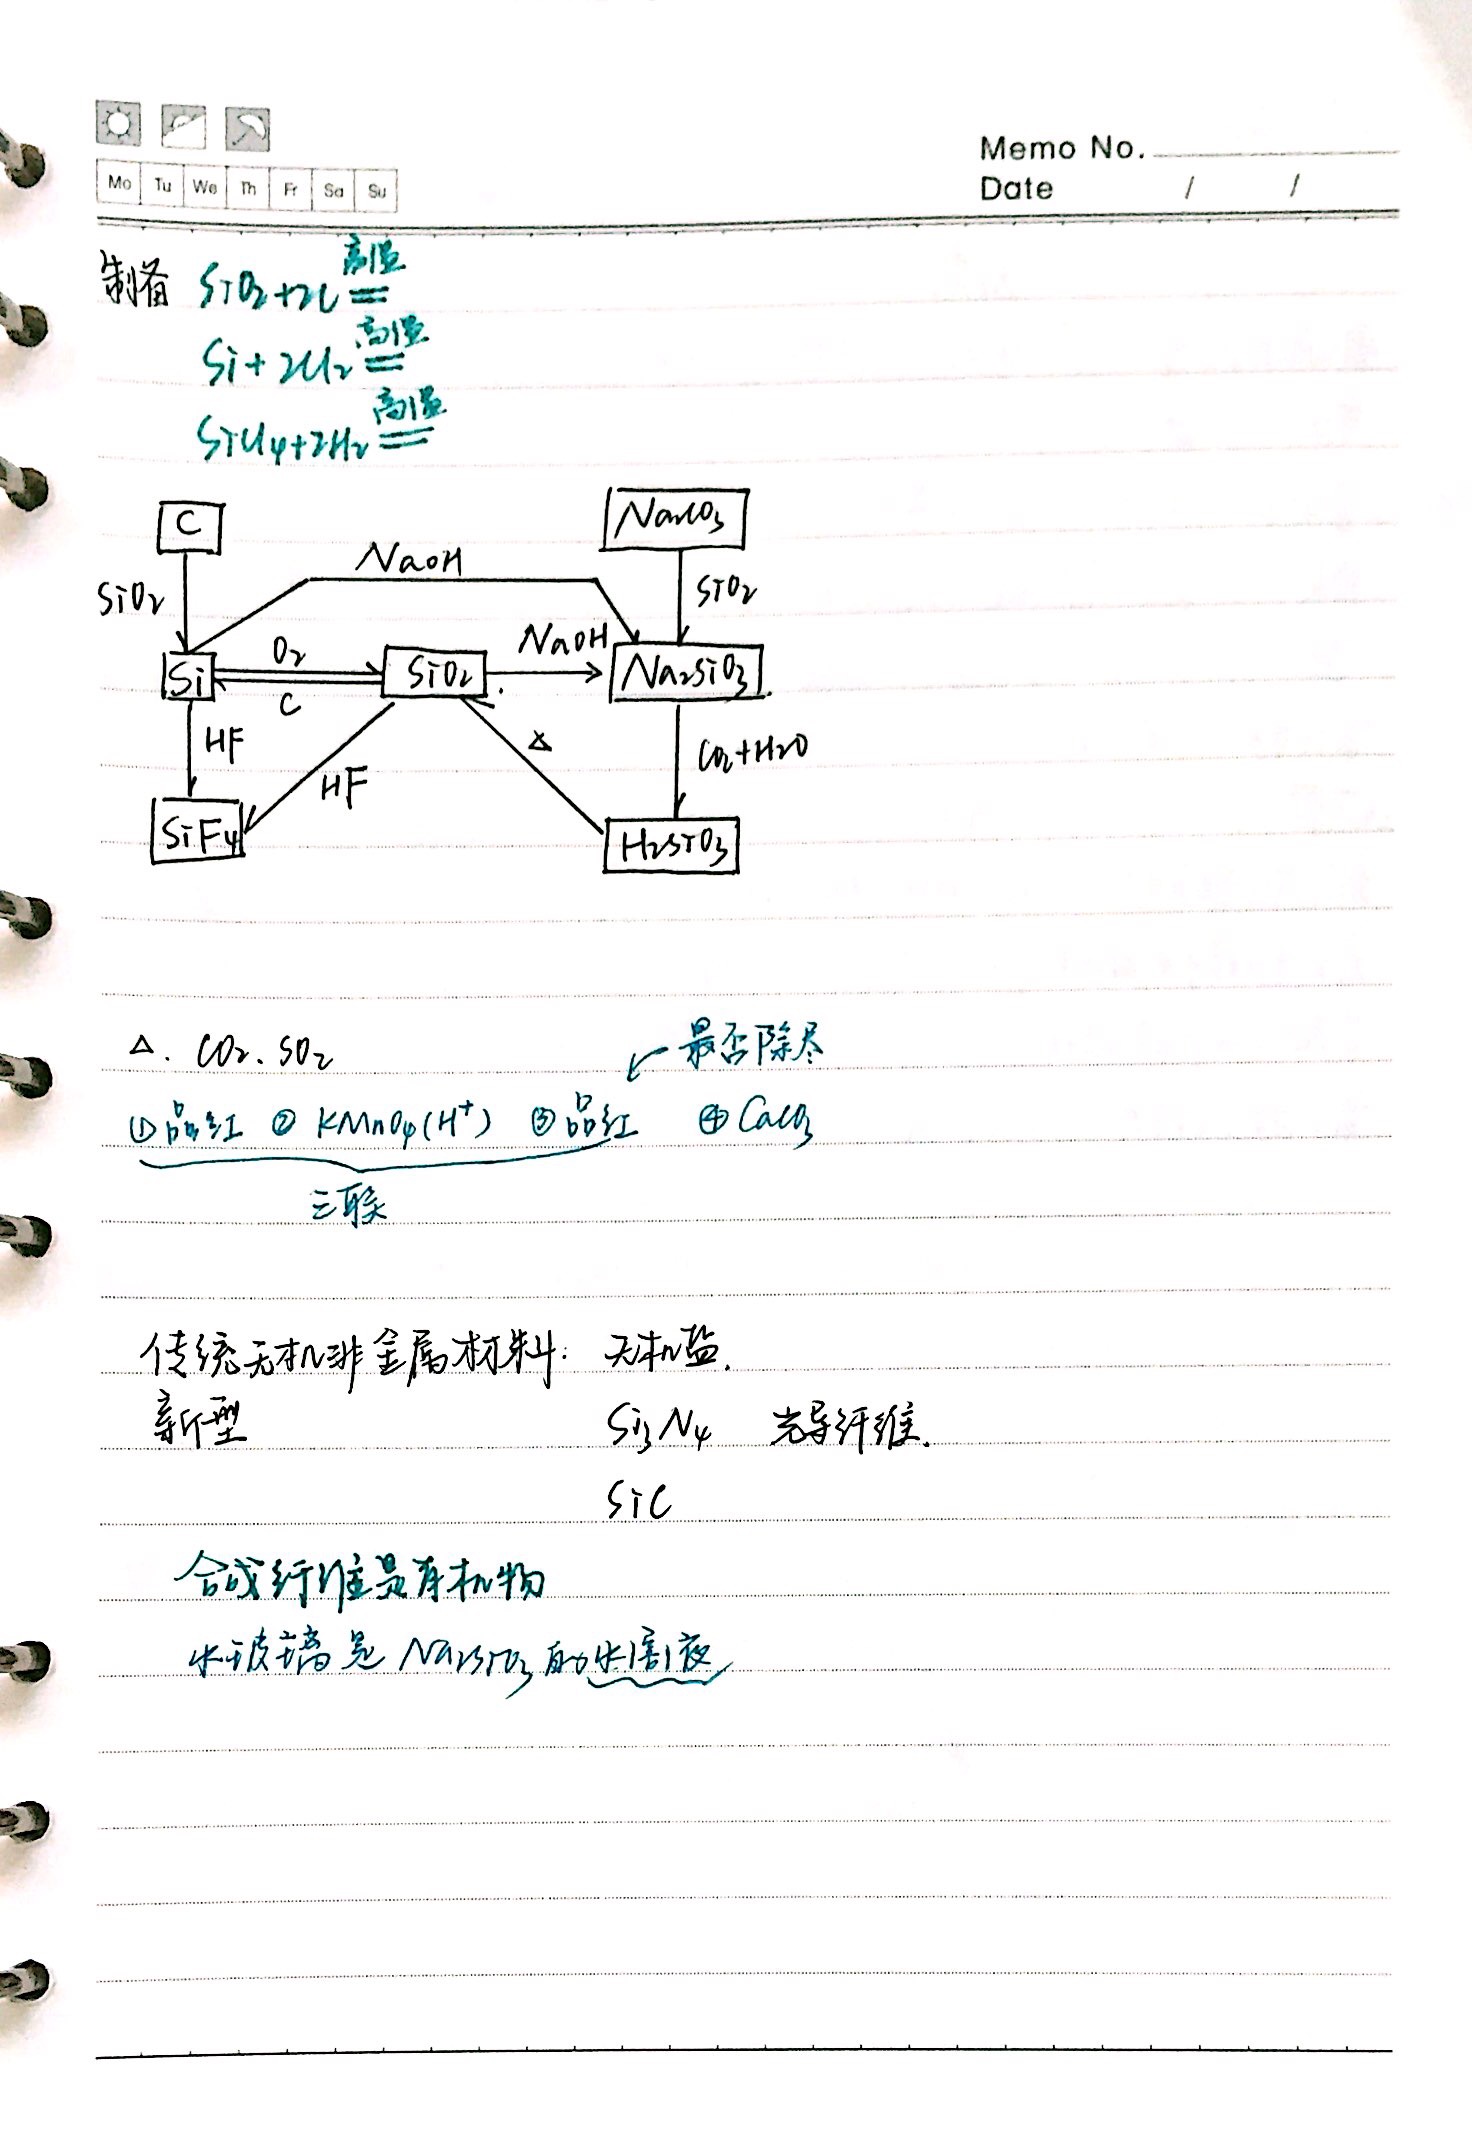 Memo No.
Mo Tu We Th Fr Sa Su
Date / /
制备 SiO₂+2C 高温 ==
Si+2Cl₂ 高温 ==
SiCl₄+2H₂ 高温 ==
C Na₂CO₃
NaOH
SiO₂ SiO₂
O₂ NaOH
Si SiO₂ Na₂SiO₃
C
HF HF △ CO₂+H₂O
SiF₄ H₂SiO₃
△. CO₂、SO₂ 是否除尽
①品红 ② KMnO₄(H⁺) ③品红 ④ CaCO₃
三联
传统无机非金属材料: 无机盐.
新型 Si₃N₄ 光导纤维.
SiC
合成纤维是有机物
水玻璃是 Na₂SiO₃ 的水溶液